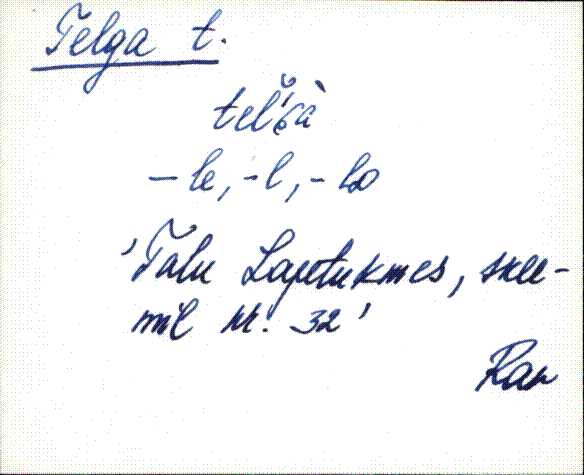 Telga t.
-le, -l, -lo
'Talu Laptukmes, skee-
mil nr. 32'
Ran